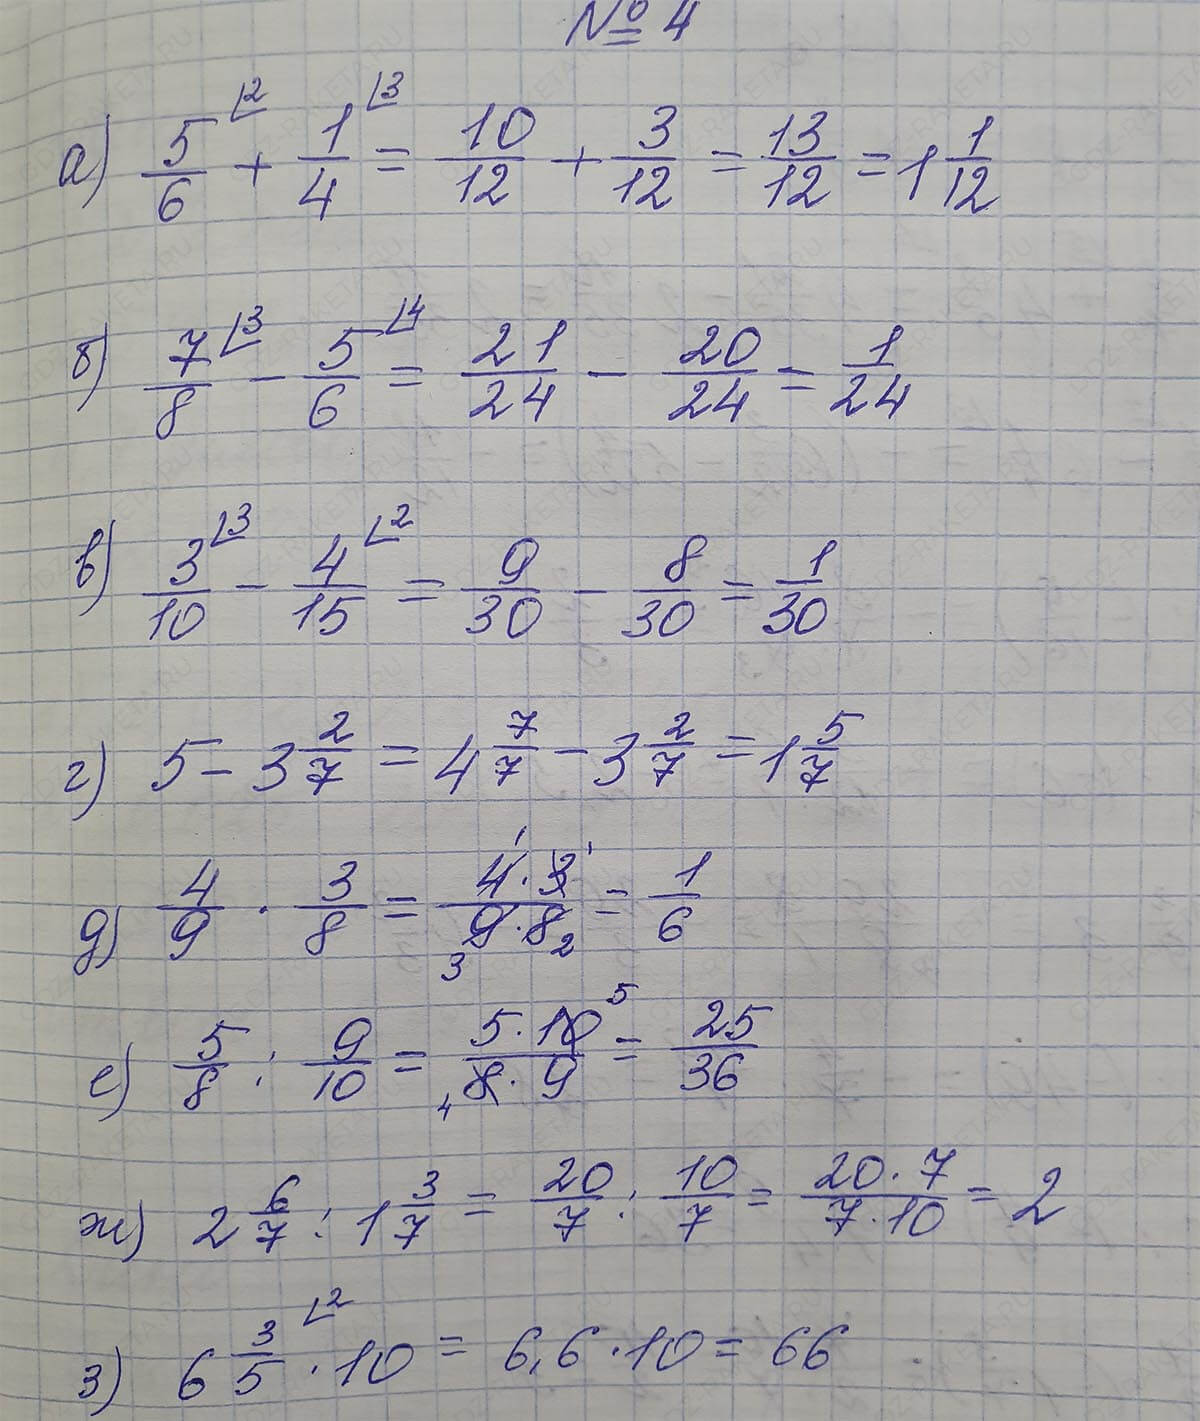 № 4
а) 5/6 ⌊2 + 1/4 ⌊3 = 10/12 + 3/12 = 13/12 = 1 1/12
б) 7/8 ⌊3 - 5/6 ⌊4 = 21/24 - 20/24 = 1/24
в) 3/10 ⌊3 - 4/15 ⌊2 = 9/30 - 8/30 = 1/30
г) 5 - 3 2/7 = 4 7/7 - 3 2/7 = 1 5/7
д) 4/9 · 3/8 = 4 1 · 3 1 / 9 3 · 8 2 = 1/6
е) 5/8 : 9/10 = 5 · 10 5 / 8 4 · 9 = 25/36
ж) 2 6/7 : 1 3/7 = 20/7 : 10/7 = 20 · 7 / 7 · 10 = 2
з) 6 3/5 ⌊2 · 10 = 6,6 · 10 = 66